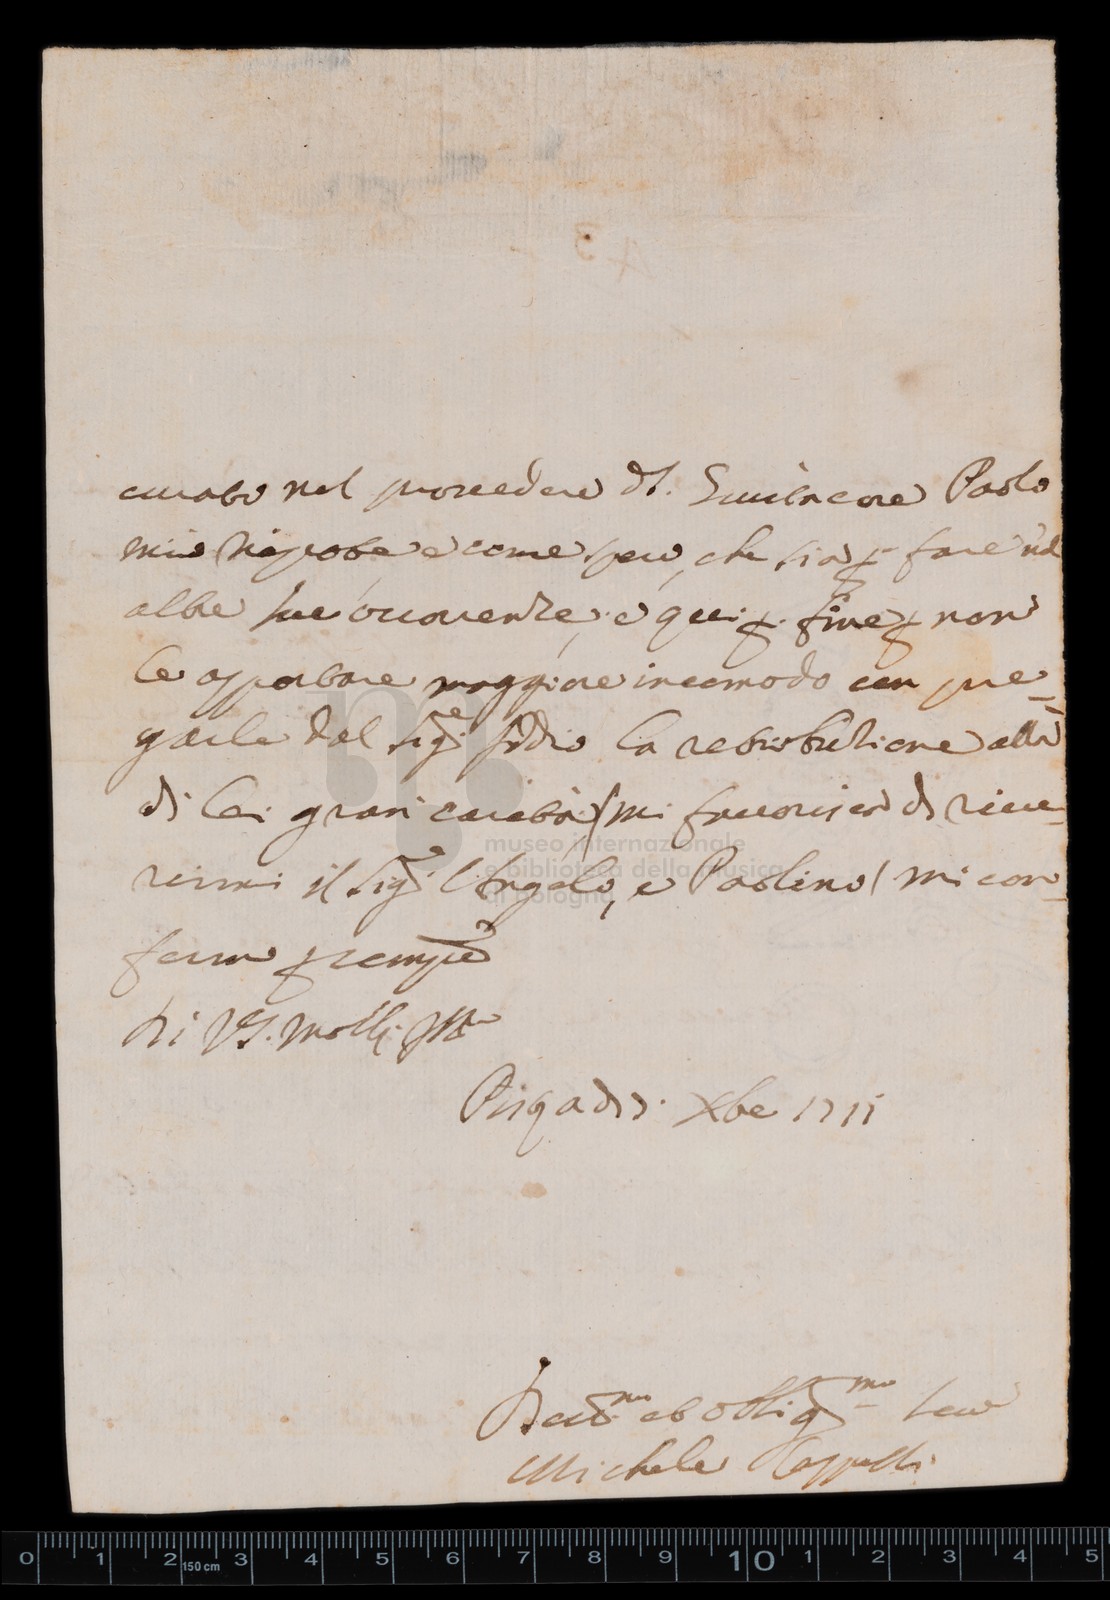 43
curato nel procedere di. Servitore Paolo
mio Nipote e come spero, che sia p fare nel
altre sue occorrenze; e qui p. fine p non
le apportare maggiore incomodo con pre-
garle dal Sig.e Iddio la retributione alla
di Lei gran carità / mi favorisca di rive-
rirmi il Sig.e Angelo, e Paolino / mi con-
fermo p sempre
Di VS. Molt. Ill.e
Xbe 1711
museo internazionale
e biblioteca della musica
di bologna
Dev.mo et Obblig.mo Serv
Michele Cappelli
0 1 2 3 4 5 6 7 8 9 10 1 2 3 4 5
150 cm